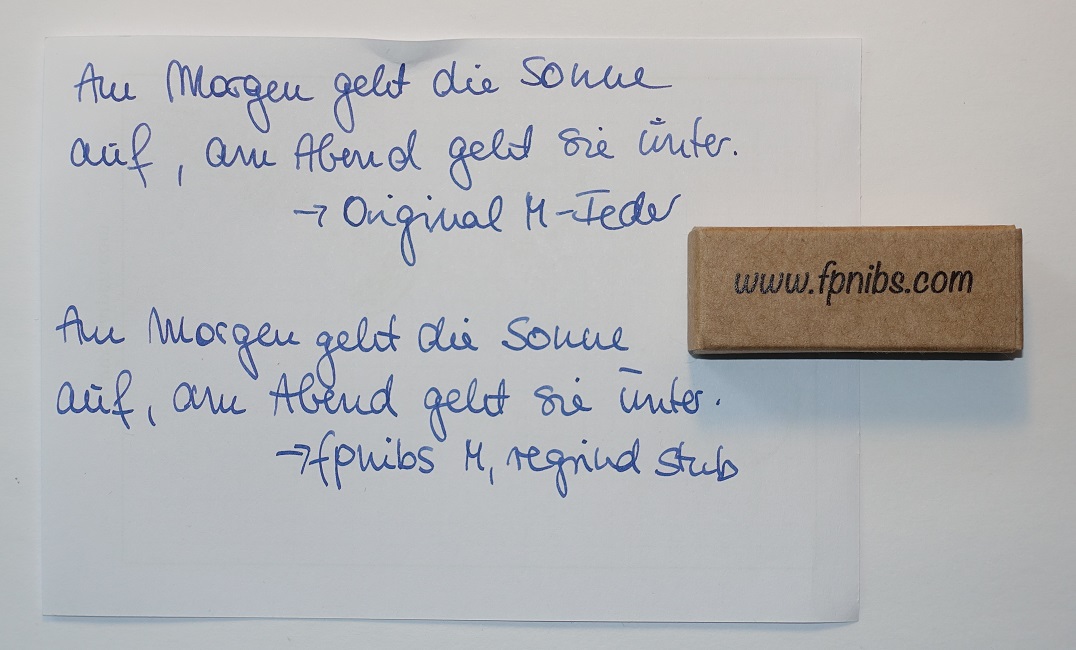 Am Morgen geht die Sonne
auf, am Abend geht sie unter.
→ Original M-Feder
www.fpnibs.com
Am Morgen geht die Sonne
auf, am Abend geht sie unter.
→ fpnibs M, regrind stub